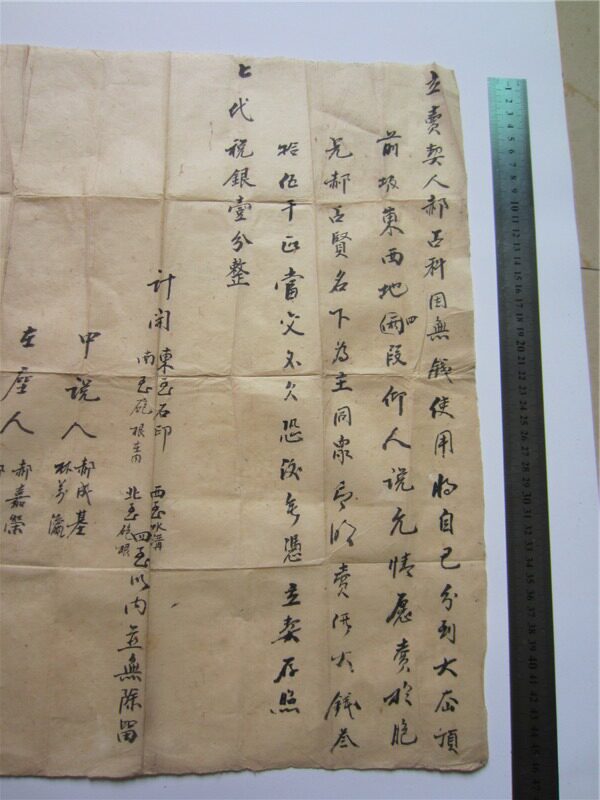 立賣契人郝占科因無錢使用將自己分到大岔頂
前坂東西地四段仰人说允情愿賣於胞
兄郝占賢名下為主同衆言明賣價大錢叁
拾伍千正當交不欠恐後無憑立契存照
上代税銀壹分整
计開 東至石印 西至水溝
南至 根 北至 根
四至以内並無除留
中说人 郝成基
林
在座人 郝嘉榮